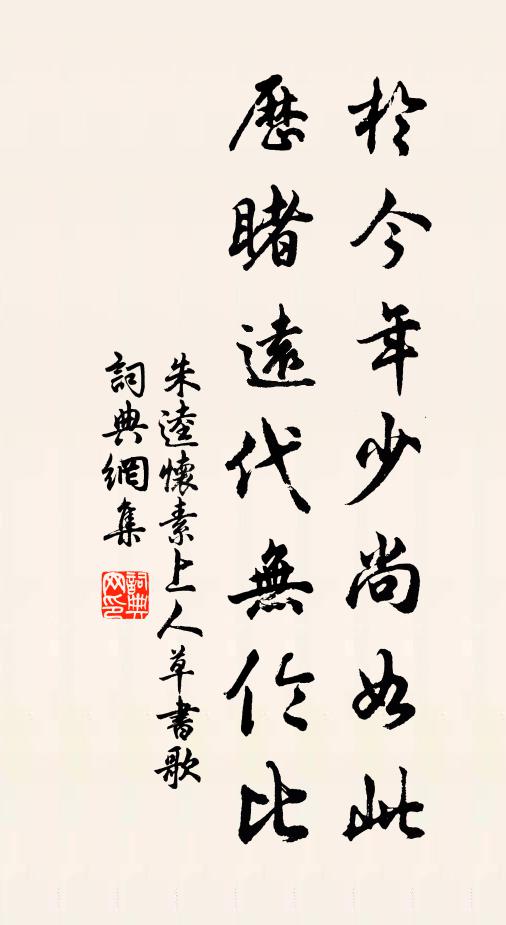 於今年少尚如此
歷睹遠代無倫比
朱逵懷素上人草書歌
詞典網集
詞典网印